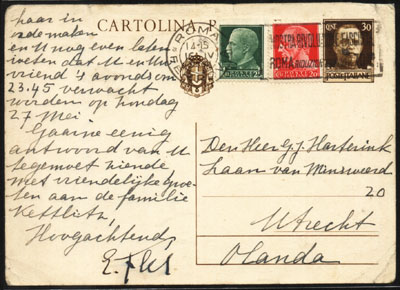 CARTOLINA P
ROMA
14-15
30
POSTE ITALIANE
20
20
ROMA RIDUZIONI
haar in
orde maken
en U nog even laten
weten dat U en Uw
vriend 's avonds om
23.45 verwacht
worden op Zondag
27 Mei.
Gaarne eenig
antwoord van U
tegemoet ziende
met vriendelijke groe-
ten aan de familie
Kettlitz,
Hoogachtend,
Den Heer G.J. Hasterink
Laan van Minsweerd
20
Utrecht
Olanda